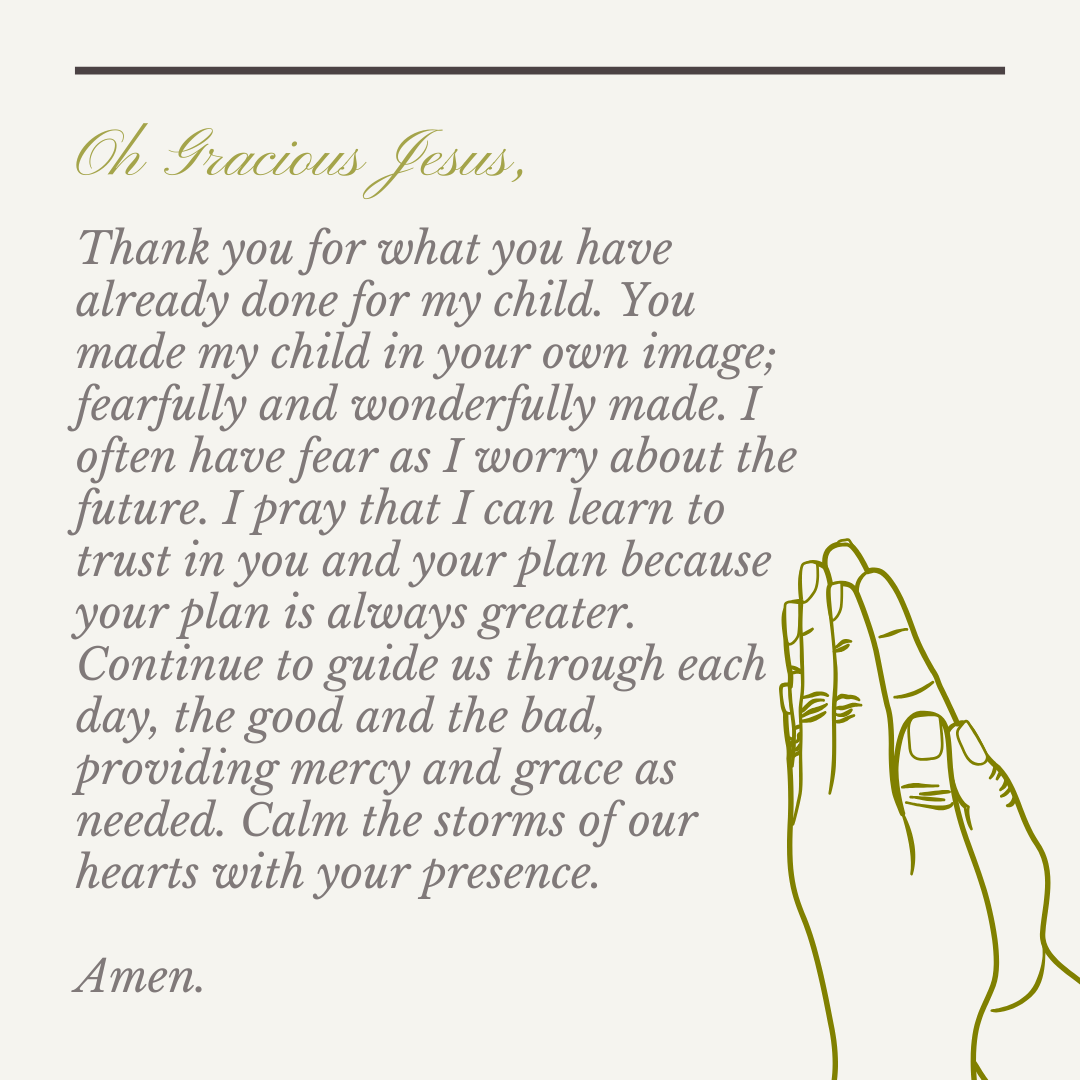 Oh Gracious Jesus,
Thank you for what you have
already done for my child. You
made my child in your own image;
fearfully and wonderfully made. I
often have fear as I worry about the
future. I pray that I can learn to
trust in you and your plan because
your plan is always greater.
Continue to guide us through each
day, the good and the bad,
providing mercy and grace as
needed. Calm the storms of our
hearts with your presence.
Amen.